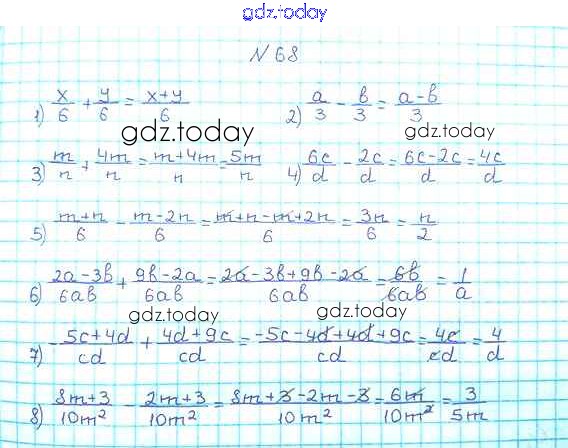 gdz.today
N 68
1) x/6 + y/6 = x+y/6
2) a/3 - b/3 = a-b/3
gdz.today
gdz.today
3) m/n + 4m/n = m+4m/n = 5m/n
4) 6c/d - 2c/d = 6c-2c/d = 4c/d
5) m+n/6 - m-2n/6 = m+n-m+2n/6 = 3n/6 = n/2
6) 2a-3b/6ab + 9b-2a/6ab = 2a-3b+9b-2a/6ab = 6b/6ab = 1/a
gdz.today
gdz.today
7) -5c+4d/cd + 4d+9c/cd = -5c-4d+4d+9c/cd = 4c/cd = 4/d
8) 8m+3/10m² - 2m+3/10m² = 8m+3-2m-3/10m² = 6m/10m² = 3/5m